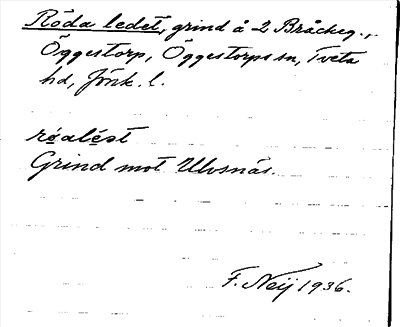 Röda ledet, grind å 2 Bråckeg.,
Öggestorp, Öggestorps sn, Tveta
hd, Jönk. l.
róalést
Grind mot Ulvsnäs.
F. Neij 1936.